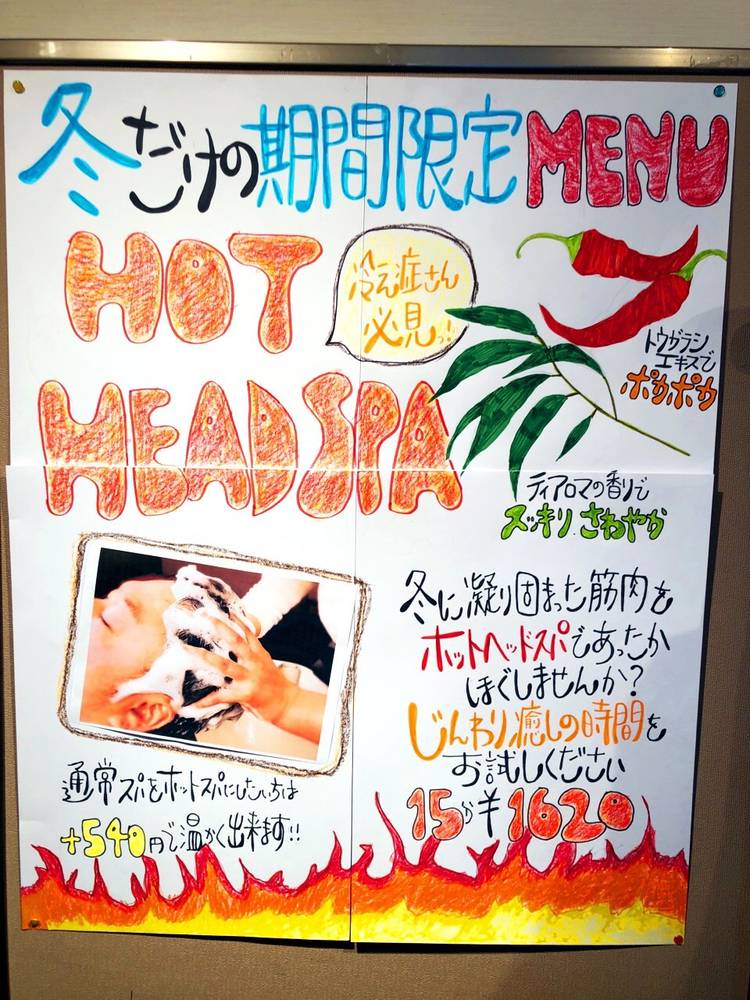 冬だけの期間限定MENU
HOT
冷え症さん
必見っ!
HEADSPA
トウガラシ
エキスで
ポカポカ
ティアロマの香りで
スッキリさわやか
冬に凝り固まった筋肉を
ホットヘッドスパであったか
ほぐしませんか?
じんわり癒しの時間を
お試しください
15分¥1620
通常スパをホットスパにしたい方は
+540円で温かく出来ます!!